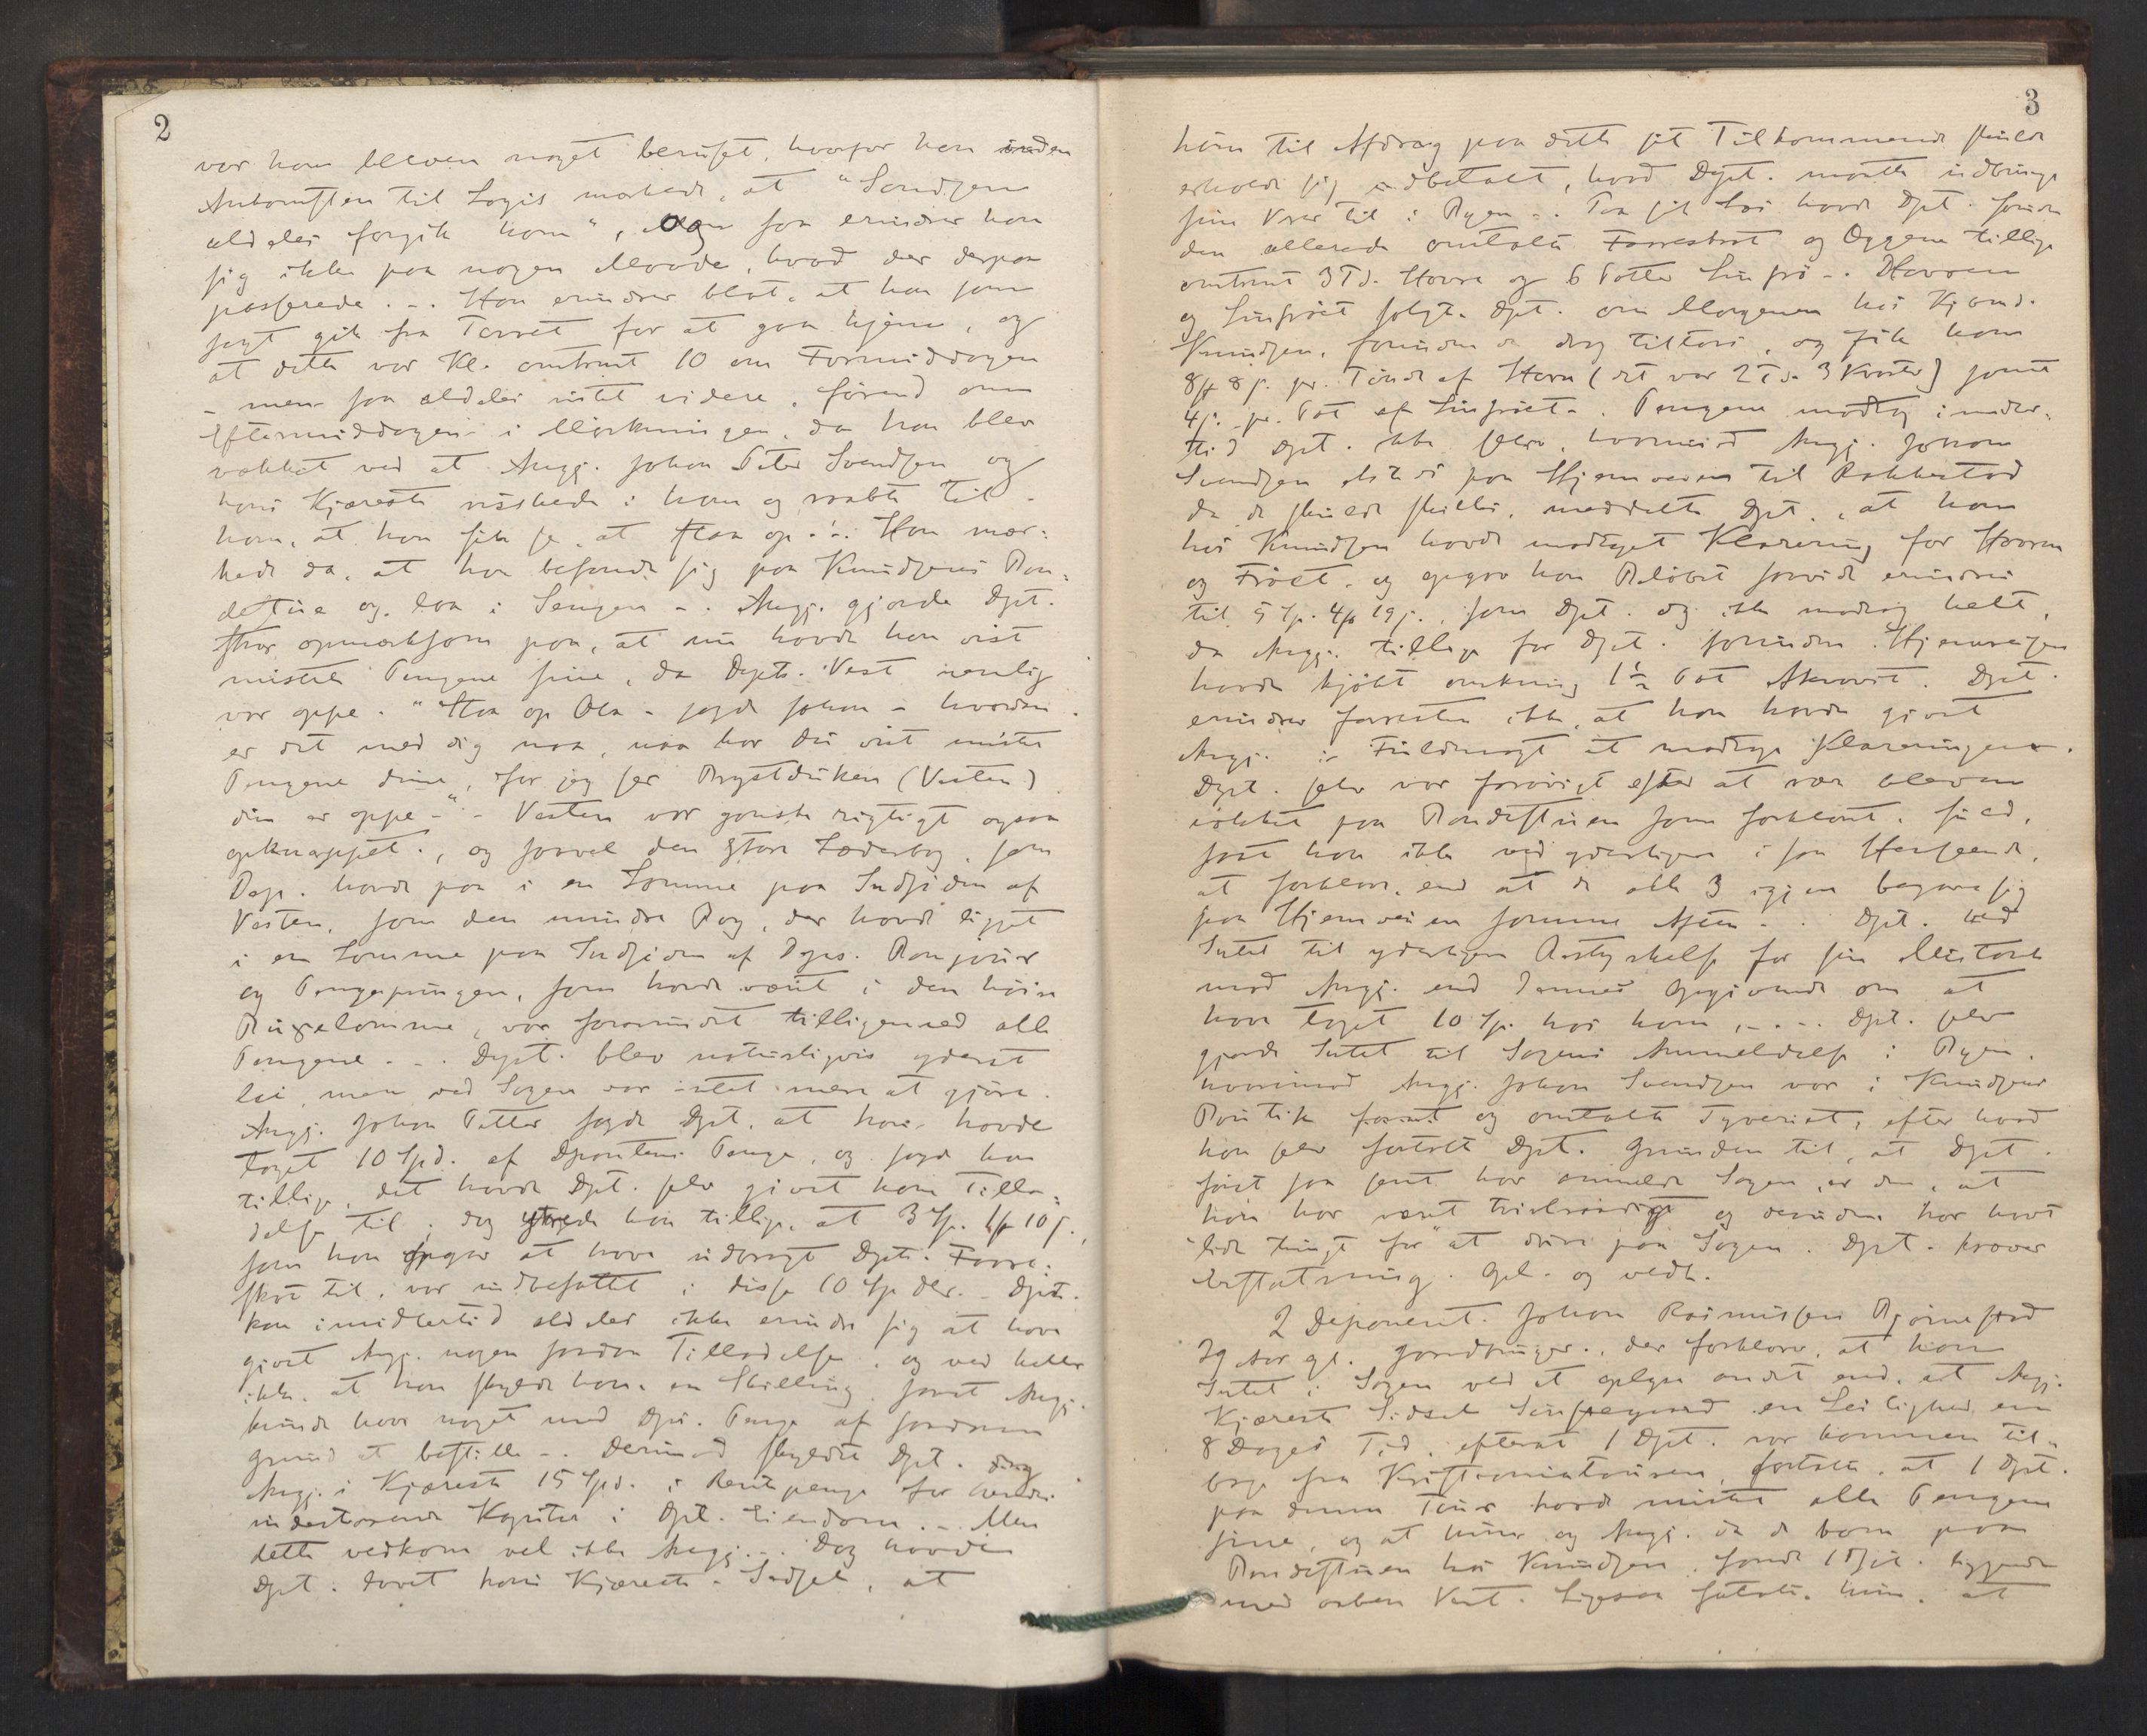 2
var han bleven noget beruset, hvorfor han inden
Ankomsten til Logis mærkede, at "Sandsen
aldeles forgik ham", og saa erindrer han
sig ikke paa nogen Maade, hvad der derpaa
passerede. -. Han erindrer blot, at han som
sagt gik fra Torvet for at gaa hjem, og
at dette var Kl. omtrent 10 om Formiddagen
- men saa aldeles intet videre, förend om
Eftermiddagen i Mörkningen, da han blev
vækket ved at Angj. Johan Peter Svendsen og
hans Kjæreste ruskede i ham og raabte til
ham, at han fik se at staa op. -. Han mær-
kede da, at han befandt sig paa Knudsens Bon-
destue og laa i Sengen -. Angj. gjorde Dpt.
strax opmærksom paa, at nu havde han vist
mistet Pengene sine, da Dpts. Vest nemlig
var oppe. "Staa op Ola - sagde Johan - hvordan
er det med dig naa, naa har du vist mistet
Pengene dine, for jeg ser Brystduken (Vesten)
din er oppe -" - Vesten var ganske rigtigt ogsaa
opknappet, og saavel den store Læderbog, som
Dep. havde paa i en Lomme paa Indsiden af
Vesten, som den mindre Bog, der havde ligget
i en Lomme paa Indsiden af Dpts. Bonjour
og Pengepungen, som havde været i den höire
Buxelomme, var forsvundet tilligemed alle
Pengene -. Dept. blev naturligvis yderst
lei, men ved Sagen var intet mere at gjöre.
Angj. Johan Petter sagde Dpt. at han havde
taget 10 Spd. af Deponentens Penge, og sagde han
tillige, det havde Dpt. selv givet ham Tilla-
delse til; dog ytrede han tillige, at 3 Sp. 10 s.,
som han opgav at have udlagt Dpts.
til, var indbefattet i disse 10 Sp dlr. - Dpt.
kan imidlertid aldeles ikke erindre sig at have
givet Angj. nogen saadan Tilladelse, og ved heller
ikke, at han skyldte ham en Skilling, saa at Angj.
kunde have noget med Dpts. Penge af saadan
Grund at bestille -. Derimod skyldte Dpt. dog
Angj.s Kjæreste 15 Spd. i Rentepenge for hendes
indestaaende Kapital i Dpt. Eiendom. - Men
dette vedkom vel ikke Angj. -. Dog havde
Dpt. lovet hans Kjæreste - Sidsel, at
3
hun til Afdrag paa dette sit Tilkommende skulde
erholde sig udbetalt, hvad Dpt. maatte indbringe
sine Varer til i Byen -. Paa sit Læs havde Dpt. foruden
den allerede omtalte og Æggene tillige
omtrent 3 Td. Havre og 6 Potter Linfrö -. Havren
og Linfröet solgte Dpt. om Morgenen hos Kjöbmd.
Knudsen, forinden de drog tiltorvs, og fik han
8 s. pr. Tönde af Havre (det var 2 Td. 3 Kvarter) samt
4 s. pr. Pot af Linfröet -. Pengene modtog imidler-
tid Dpt. ikke selv, hvorimod Angj. Johan
Svendsen altsaa paa Hjemveien til Rakkestad
da de skulde skilles, meddelte Dpt., at han
hos Knudsen havde modtaget Klarering for Havren
og Fröet, og opgav han Belöbet saavidt erindres
til 5 Sp. 4 19 s., som Dpt. dog ikke modtog helt,
da Angj. tillige for Dpt. forinden Hjemreisen
havde kjöbt omkring 1½ Pot Akevit. Dpt.
erindrer forresten ikke, at han havde givet
Angj. Fuldmagt at modtage Klareringen.
Dpt. selv var forövrigt efter at være bleven
vækket paa Bondestuen som forklaret, fuld,
saa at han ikke ved yderligere i saa Henseende
at forklare, end at de alle 3 igjen begave sig
paa Hjemveien samme Aften -. Dpt. ved
Intet til yderligere Bestyrkelse for sin Mistanke
mod Angj. end dennes Opgivende om at
have taget 10 Sp. hos ham, -. Dpt. selv
gjorde Intet til Sagens Anmeldelse i Byen,
hvorimod Angj. Johan Svendsen var i Knudsens
Boutik og omtalte Tyveriet, efter hvad
han selv fortalte Dpt. Grunden til, at Dpt.
först saa sent har anmeldt Sagen, er den, at
han har været tvivlraadig og desuden har havt
lidt tungt for at drive paa Sagen. Dpt. kræver
Erstatning. Opl. og vedt.
2 Deponent. Johan Rasmussen Bjørnestad
29 Aar gl. Gaardbruger, der forklarer, at han
Intet i Sagen ved at oplyse andet end, at Angj.
Kjæreste Sidsel en Leilighed en
8 Dages Tid, efterat 1 Dpt. var kommen til-
bage fra Kristianiatouren, fortalte, at 1 Dpt.
paa denne Tour havde mistet alle Pengene
sine, og at hun og Angj. da de kom paa
Bondestuen hos Knudsen, fandt 1 Dpt. liggende
med aaben Vest. Ligesaa fortalte hun, at